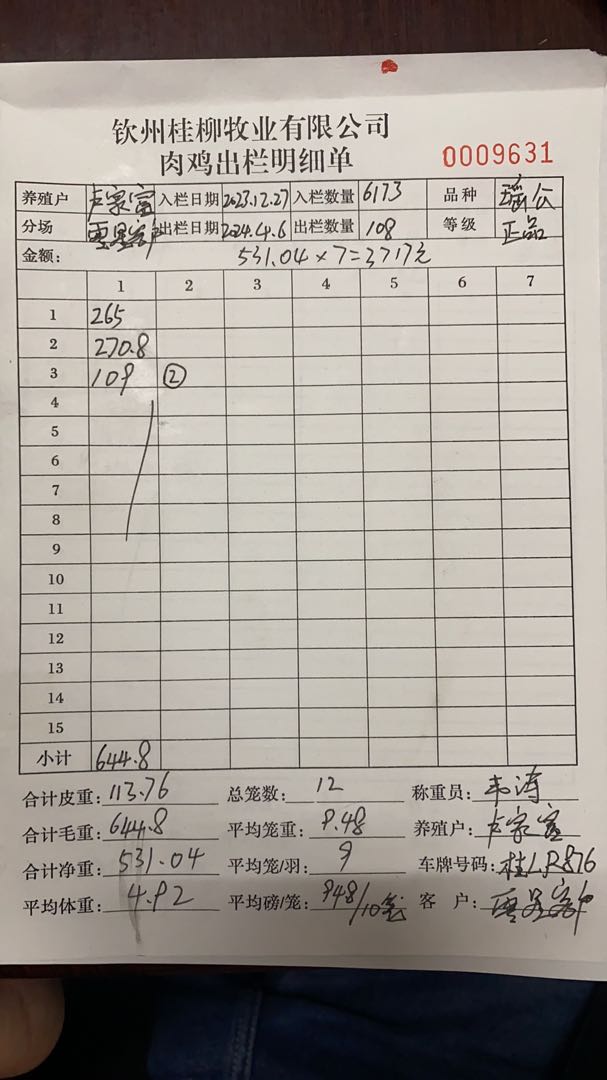 钦州桂柳牧业有限公司
肉鸡出栏明细单
0009631
养殖户 卢家富 入栏日期 2023.12.27 入栏数量 6173 品种 瑶公
分场 出栏日期 2024.4.6 出栏数量 108 等级 正品
金额: 531.04×7=3717元
1 2 3 4 5 6 7
1 265
2 270.8
3 109 ②
4
5
6
7
8
9
10
11
12
13
14
15
小计 644.8
合计皮重: 113.76 总笼数: 12 称重员: 韦涛
合计毛重: 644.8 平均笼重: 9.48 养殖户: 卢家富
合计净重: 531.04 平均笼/羽: 9 车牌号码:
平均体重: 4.92 平均磅/笼: 948/10笼 客 户: